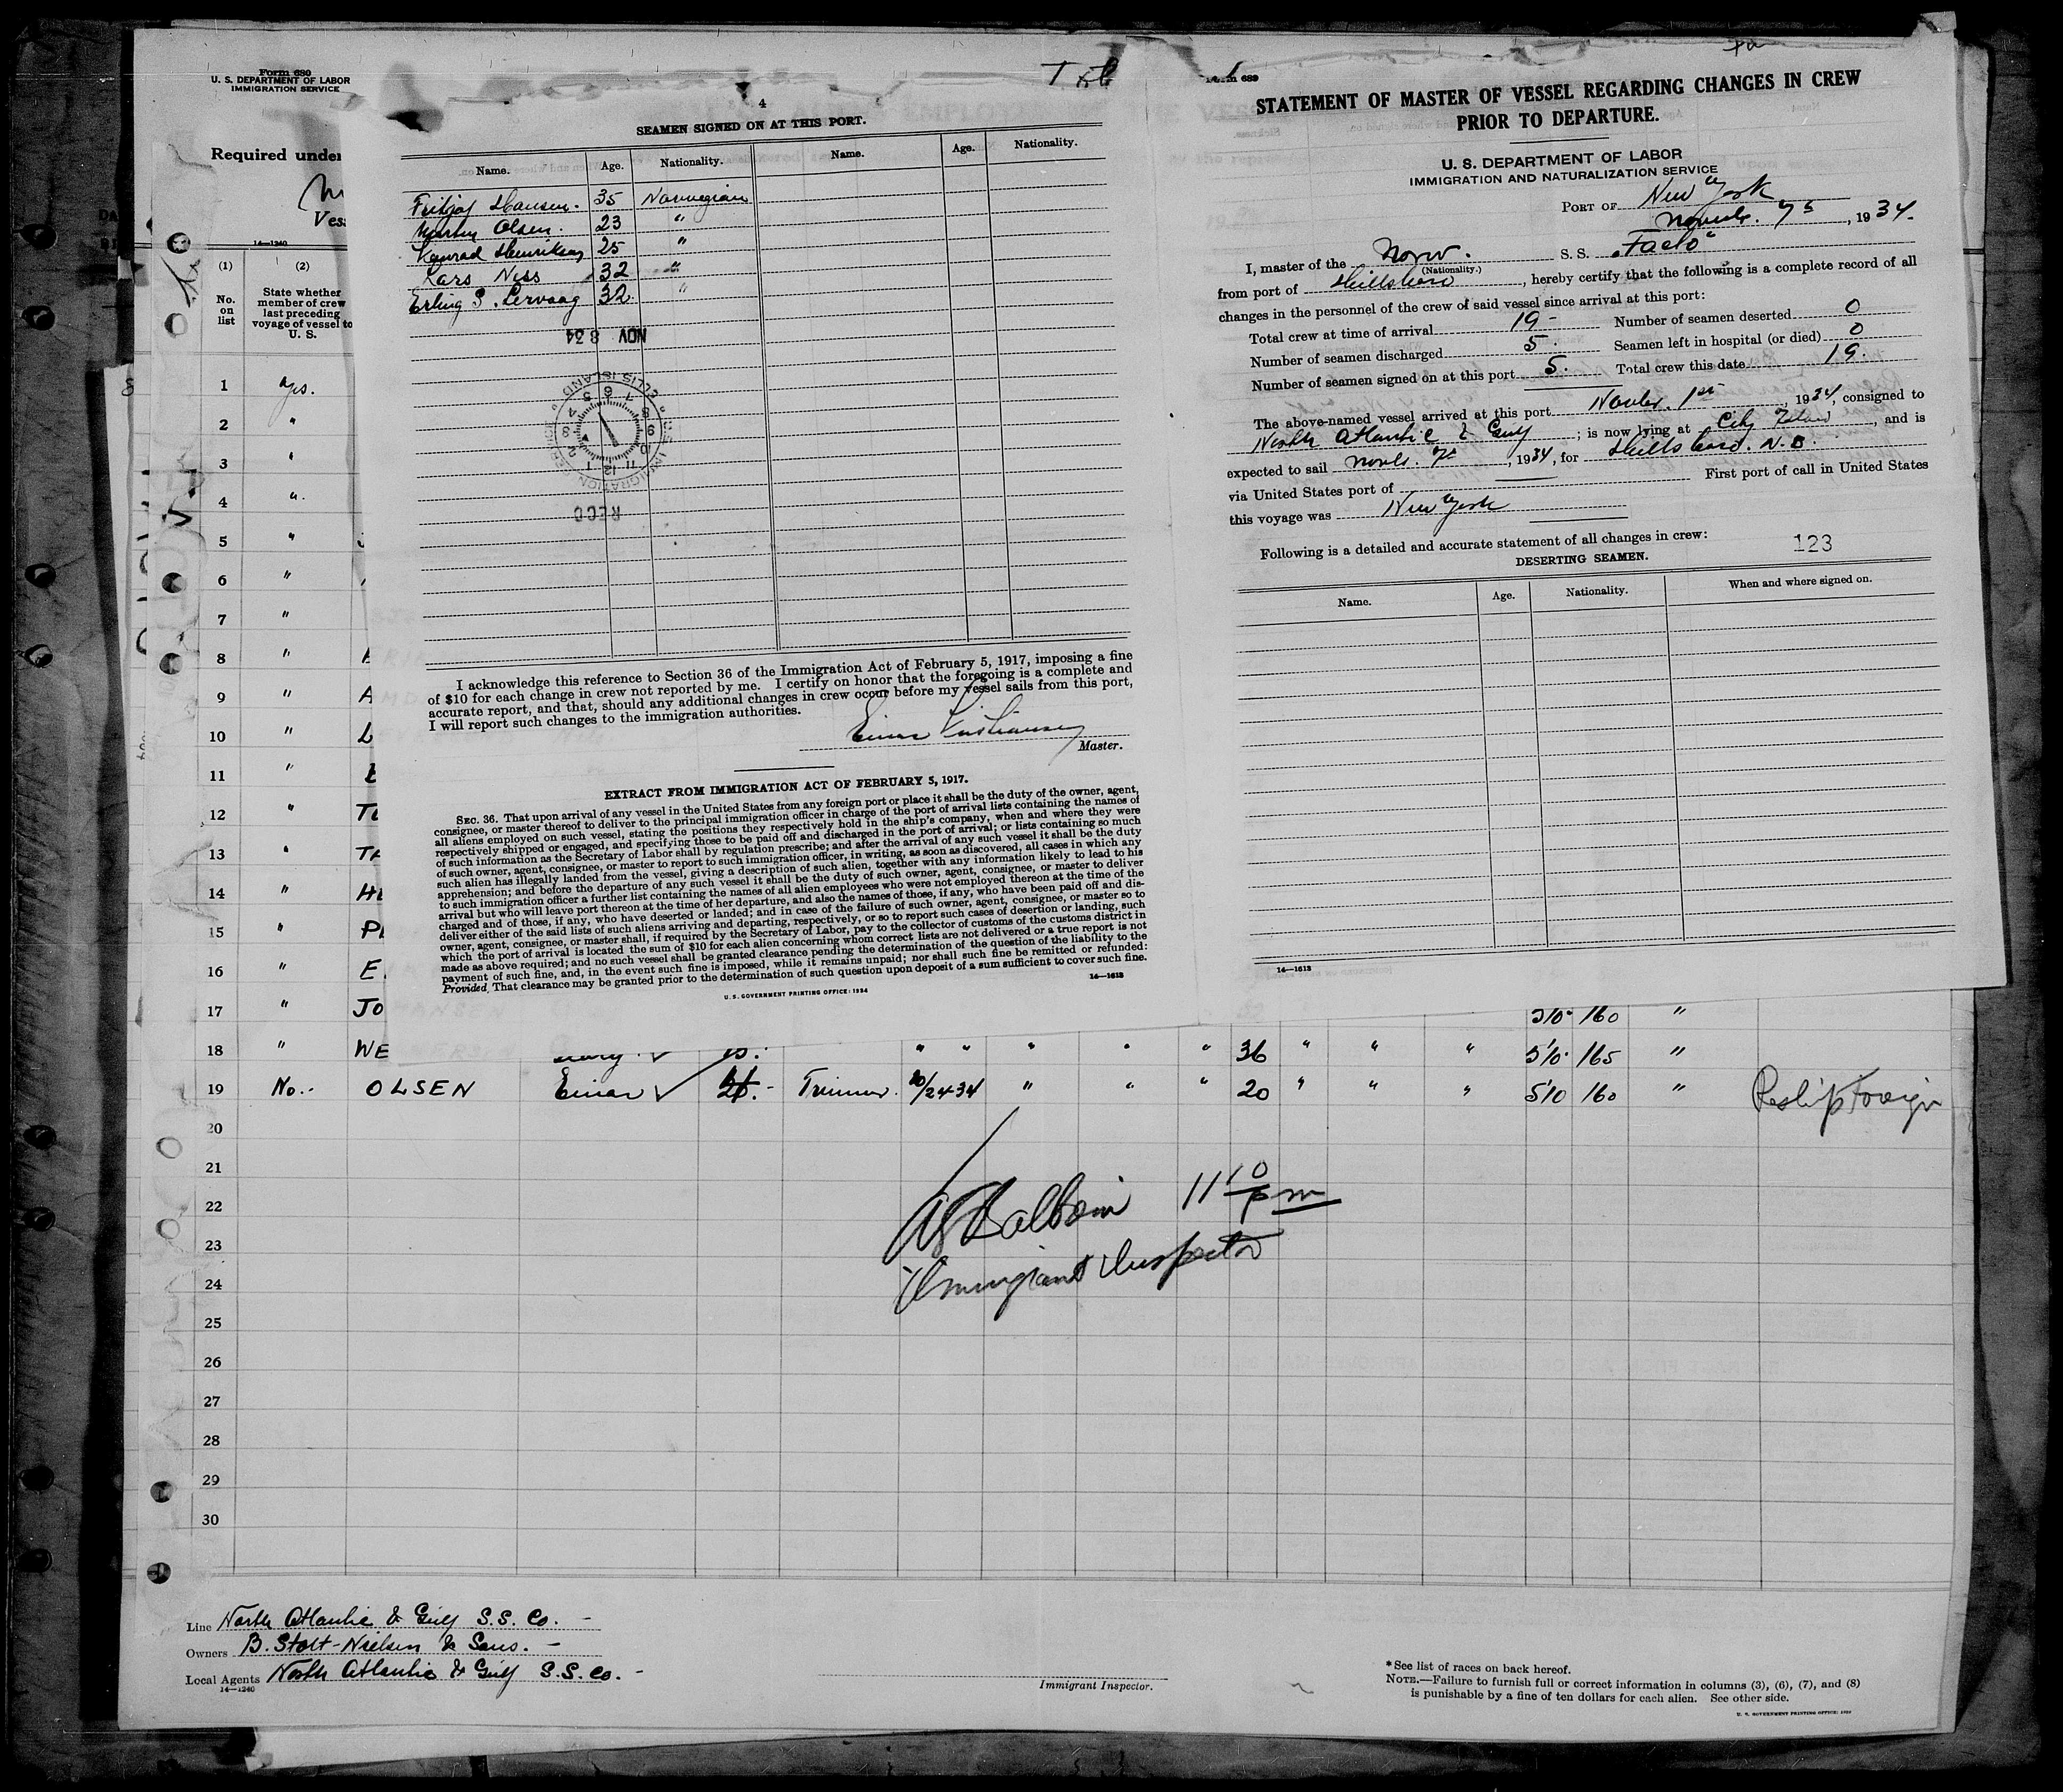 Form 680
U. S. DEPARTMENT OF LABOR
IMMIGRATION SERVICE
Required under
Vess
14—1240
(1)
No.
on
list
(2)
State whether
member of crew
last preceding
voyage of vessel to
U. S.
1 yes.
2 "
3 "
4 "
5 "
6 "
7 "
8 "
9 " A
10 " L
11 "
12 " TO
13 " TA
14 " HE
15 "
16 " E.
17 " JO 5'10" 160 "
18 " WE " " " " " 36 " " " 5'10" 165 "
19 No.- OLSEN Einar ✓ Trimmer. 10/24-34 " " " 20 " " " 5'10 160 " Reship Foreign
20
21
22
23
24
25
26
27
28
29
30
11 10 pm
Immigrant Inspector
Line North Atlantic & Gulf S.S. Co. -
Owners B. Stolt-Nielsen & Sons. -
Local Agents North Atlantic & Gulf S.S. Co. -
14—1240
Immigrant Inspector.
*See list of races on back hereof.
NOTE.—Failure to furnish full or correct information in columns (3), (6), (7), and (8)
is punishable by a fine of ten dollars for each alien. See other side.
U. S. GOVERNMENT PRINTING OFFICE: 1929
4
SEAMEN SIGNED ON AT THIS PORT.
Name. Age. Nationality. Name. Age. Nationality.
Fritjof Hansen. 35 Norwegian
Martin Olsen. 23 "
Konrad Henriksen 25 "
Lars Ness 32 "
Erling S. Lervaag 32 "
NOV 8 34
U.S. IMMIGRATION SERVICE
ELLIS ISLAND
RECD
I acknowledge this reference to Section 36 of the Immigration Act of February 5, 1917, imposing a fine
of $10 for each change in crew not reported by me. I certify on honor that the foregoing is a complete and
accurate report, and that, should any additional changes in crew occur before my vessel sails from this port,
I will report such changes to the immigration authorities.
Einar Kristiansen
Master.
EXTRACT FROM IMMIGRATION ACT OF FEBRUARY 5, 1917.
SEC. 36. That upon arrival of any vessel in the United States from any foreign port or place it shall be the duty of the owner, agent,
consignee, or master thereof to deliver to the principal immigration officer in charge of the port of arrival lists containing the names of
all aliens employed on such vessel, stating the positions they respectively hold in the ship's company, when and where they were
respectively shipped or engaged, and specifying those to be paid off and discharged in the port of arrival; or lists containing so much
of such information as the Secretary of Labor shall by regulation prescribe; and after the arrival of any such vessel it shall be the duty
of such owner, agent, consignee, or master to report to such immigration officer, in writing, as soon as discovered, all cases in which any
such alien has illegally landed from the vessel, giving a description of such alien, together with any information likely to lead to his
apprehension; and before the departure of any such vessel it shall be the duty of such owner, agent, consignee, or master to deliver
to such immigration officer a further list containing the names of all alien employees who were not employed thereon at the time of the
arrival but who will leave port thereon at the time of her departure, and also the names of those, if any, who have been paid off and dis-
charged and of those, if any, who have deserted or landed; and in case of the failure of such owner, agent, consignee, or master so to
deliver either of the said lists of such aliens arriving and departing, respectively, or so to report such cases of desertion or landing, such
owner, agent, consignee, or master shall, if required by the Secretary of Labor, pay to the collector of customs of the customs district in
which the port of arrival is located the sum of $10 for each alien concerning whom correct lists are not delivered or a true report is not
made as above required; and no such vessel shall be granted clearance pending the determination of the question of the liability to the
payment of such fine, and, in the event such fine is imposed, while it remains unpaid; nor shall such fine be remitted or refunded:
Provided, That clearance may be granted prior to the determination of such question upon deposit of a sum sufficient to cover such fine.
14—1613
U. S. GOVERNMENT PRINTING OFFICE: 1934
Form 689
STATEMENT OF MASTER OF VESSEL REGARDING CHANGES IN CREW
PRIOR TO DEPARTURE.
U. S. DEPARTMENT OF LABOR
IMMIGRATION AND NATURALIZATION SERVICE
PORT OF New York
Novbr. 7th, 1934.
I, master of the Norw. S. S. "Facto"
(Nationality.)
from port of Hillsboro, hereby certify that the following is a complete record of all
changes in the personnel of the crew of said vessel since arrival at this port:
Total crew at time of arrival 19- Number of seamen deserted 0
Number of seamen discharged 5. Seamen left in hospital (or died) 0
Number of seamen signed on at this port 5. Total crew this date 19.
The above-named vessel arrived at this port Novbr. 1st, 1934, consigned to
North Atlantic & Gulf; is now lying at City Island, and is
expected to sail Novb. 7th, 1934, for Hillsboro. N.B.
via United States port of First port of call in United States
this voyage was New York
Following is a detailed and accurate statement of all changes in crew:
123
DESERTING SEAMEN.
Name. Age. Nationality. When and where signed on.
14—1613